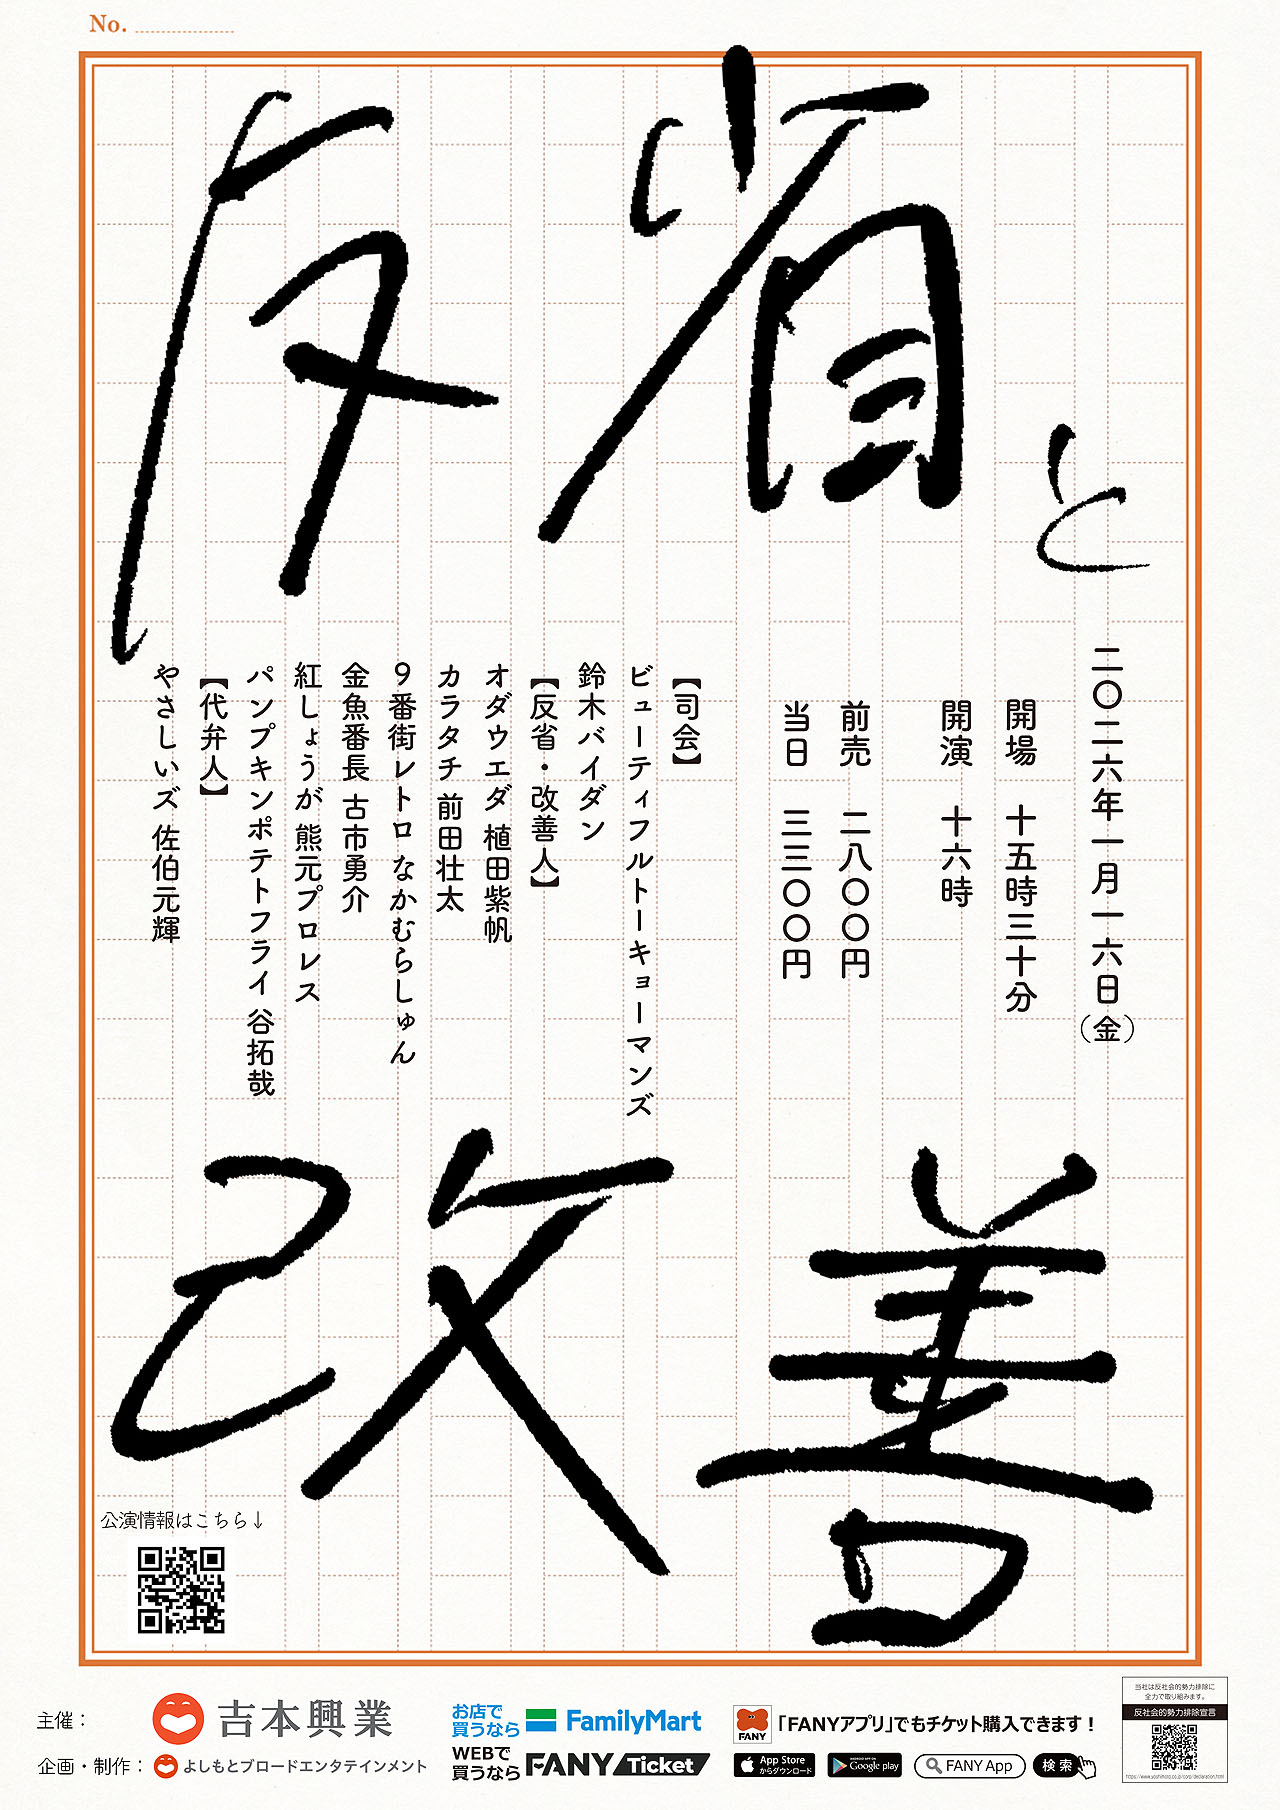 No.
反省と
改善
二〇二六年一月一六日(金)
開場 十五時三十分
開演 十六時
前売 二八〇〇円
当日 三三〇〇円
【司会】
ビューティフルトーキョーマンズ
鈴木バイダン
【反省・改善人】
オダウエダ 植田紫帆
カラタチ 前田壮太
9番街レトロ なかむらしゅん
金魚番長 古市勇介
紅しょうが 熊元プロレス
パンプキンポテトフライ 谷拓哉
【代弁人】
やさしいズ 佐伯元輝
公演情報はこちら↓
主催:
吉本興業
企画・制作:
よしもとブロードエンタテインメント
お店で
買うなら
FamilyMart
WEBで
買うなら
FANY Ticket
FANY
「FANYアプリ」でもチケット購入できます!
App Store
からダウンロード
ANDROID APP ON
Google play
FANY App
検索
当社は反社会的勢力排除に
全力で取り組みます。
反社会的勢力排除宣言